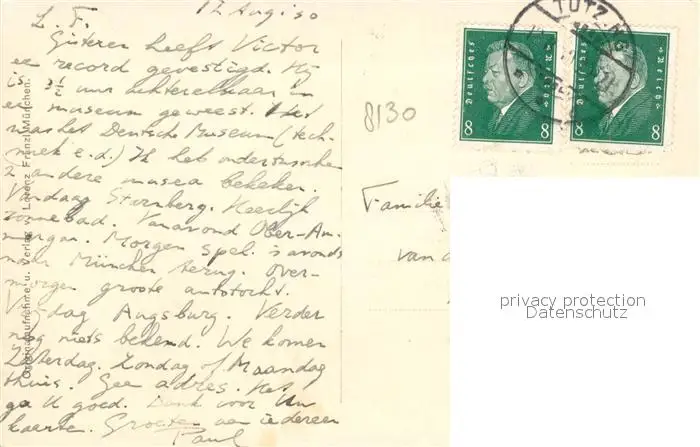 12 Aug '30
L. F.
Gisteren heeft Victor
een record gevestigd. Hij
is 3½ uur achterelkaar in
een museum geweest. Het
was het Deutsche Museum (tech-
niek e.d.) Ik heb ondertusschen
2 andere musea bekeken.
Vandaag Starnberg. Heerlijk
zonnebad. Vanavond Ober-Am-
mergau. Morgen spel. 's avonds
naar München terug. Over-
morgen groote autotocht.
Vrijdag Augsburg. Verder
nog niets bekend. We komen
Zaterdag, Zondag of Maandag
thuis. Geen adres. Het
ga U goed. Dank voor Uw
kaarte. Groeten aan iedereen
Paul
Originalaufnahme u. Verlag v. Lorenz Fränzl München.
8130
TUTZING
Deutsches Reich
8 8
Deutsches Reich
8 8
Familie
van
privacy protection
Datenschutz